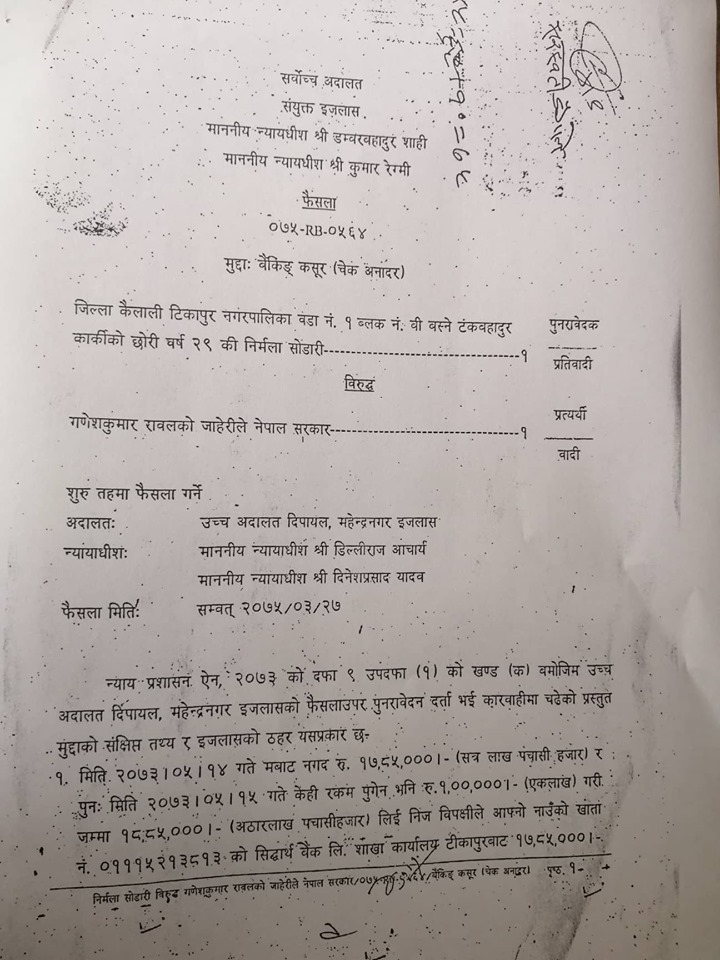 सर्वोच्च अदालत
संयुक्त इजलास
माननीय न्यायधीश श्री डम्बरबहादुर शाही
माननीय न्यायधीश श्री कुमार रेग्मी
फैसला
०७५-RB-०५६४
मुद्दाः बैंकिङ्ग कसूर (चेक अनादर)
जिल्ला कैलाली टिकापुर नगरपालिका वडा नं. १ ब्लक नं. वी वस्ने टंकवहादुर
कार्कीको छोरी वर्ष २९ की निर्मला सोडारी-----------------------------------१
पुनरावेदक
प्रतिवादी
विरुद्ध
गणेशकुमार रावलको जाहेरीले नेपाल सरकार-----------------------------------१
प्रत्यर्थी
वादी
शुरु तहमा फैसला गर्ने
अदालतः उच्च अदालत दिपायल, महेन्द्रनगर इजलास
न्यायाधीशः माननीय न्यायाधीश श्री डिल्लीराज आचार्य
माननीय न्यायाधीश श्री दिनेशप्रसाद यादव
फैसला मितिः सम्वत् २०७५/०३/२७
न्याय प्रशासन ऐन, २०७३ को दफा ९ उपदफा (१) को खण्ड (क) वमोजिम उच्च
अदालत दिपायल, महेन्द्रनगर इजलासको फैसलाउपर पुनरावेदन दर्ता भई कारवाहीमा चढेको प्रस्तुत
मुद्दाको संक्षिप्त तथ्य र इजलासको ठहर यसप्रकार छ-
१. मिति २०७३।०५।१४ गते मबाट नगद रु. १७,८५,०००।- (सत्र लाख पंचासी हजार) र
पुनः मिति २०७३।०५।१५ गते केही रकम पुगेन भनि रु.१,००,०००।- (एकलाख) गरी
जम्मा १८,८५,०००।- (अठारलाख पचासीहजार) लिई निज विपक्षीले आफ्नो नाउँको खाता
नं. ०१११५२१३५१३ को सिद्धार्थ बैंक लि. शाखा कार्यालय टीकापुरबाट १७,८५,०००।-
निर्मला सोडारी विरुद्ध गणेशकुमार रावलको जाहेरीले नेपाल सरकार/०७५-RB-०५६४/बैंकिङ्ग कसूर (चेक अनादर) पृष्ठ. १-
२